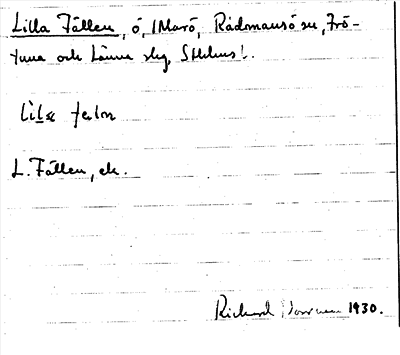 Lilla Fällen, ö, (Marö, Rådmansö sn, Frö-
tuna och Länna slg, Sthlms l.
L. Fällen, ek.
Richard 1930.